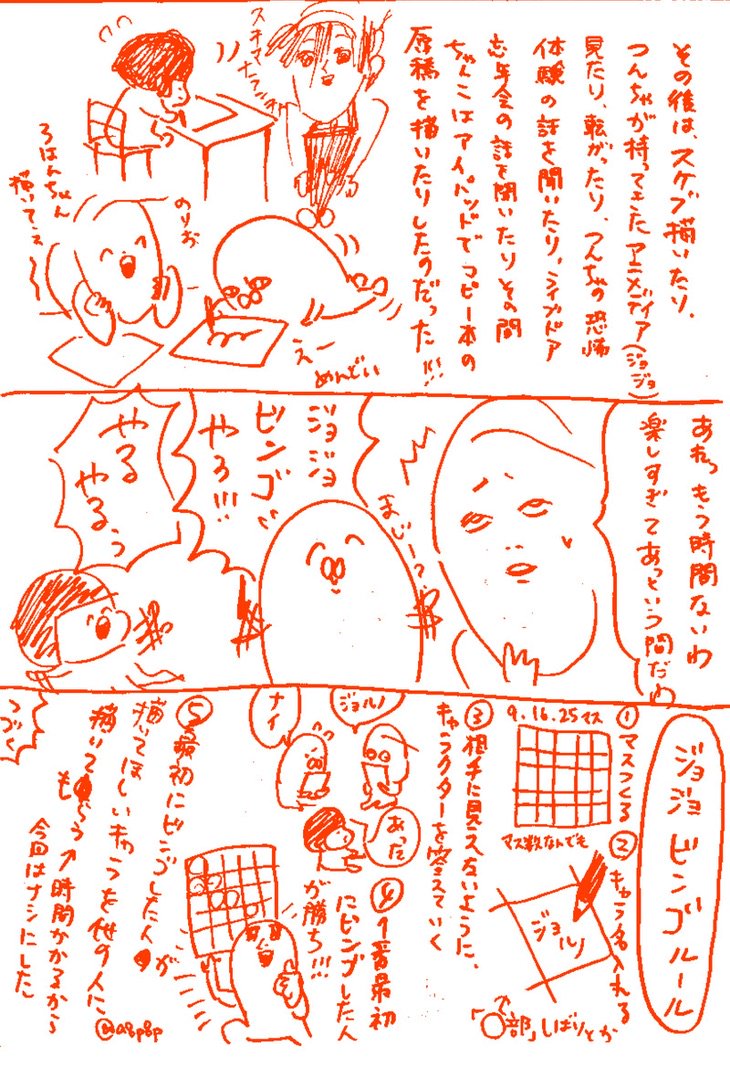 その後は、スケブ描いたり、
つんちゃが持ってきたアニメディア(ジョジョ)
見たり、転がったり、つんちゃの恐怖
体験の話を聞いたり、ライブドア
忘年会の話を聞いたりその間
ちゃんこはアイパッドでコピー本の
原稿を描いたりしたのだった!!!
スキマ
ろはんちゃん
描いてぇ〜
のりお
えー
めんどい
あれっもう時間ないわ
楽しすぎてあっという間だわ
まじー?
ジョジョ
ビンゴ
やろ!!!
やる
やるっ
ジョジョビンゴルール
①マスつくる
9.16.25マス
マス数なんでも
②キャラ名入れる
ジョルノ
「〇部」しばりとか
③相手に見えないように、
キャラクターを答えていく
ジョルノ
ナイ
あった
④1番最初
にビンゴした人
が勝ち!!!
⑤最初にビンゴした人が
描いてほしいキャラを他の人に
描いてもらう↑時間かかるから
今回はナシにした
つづく
@a8p8p